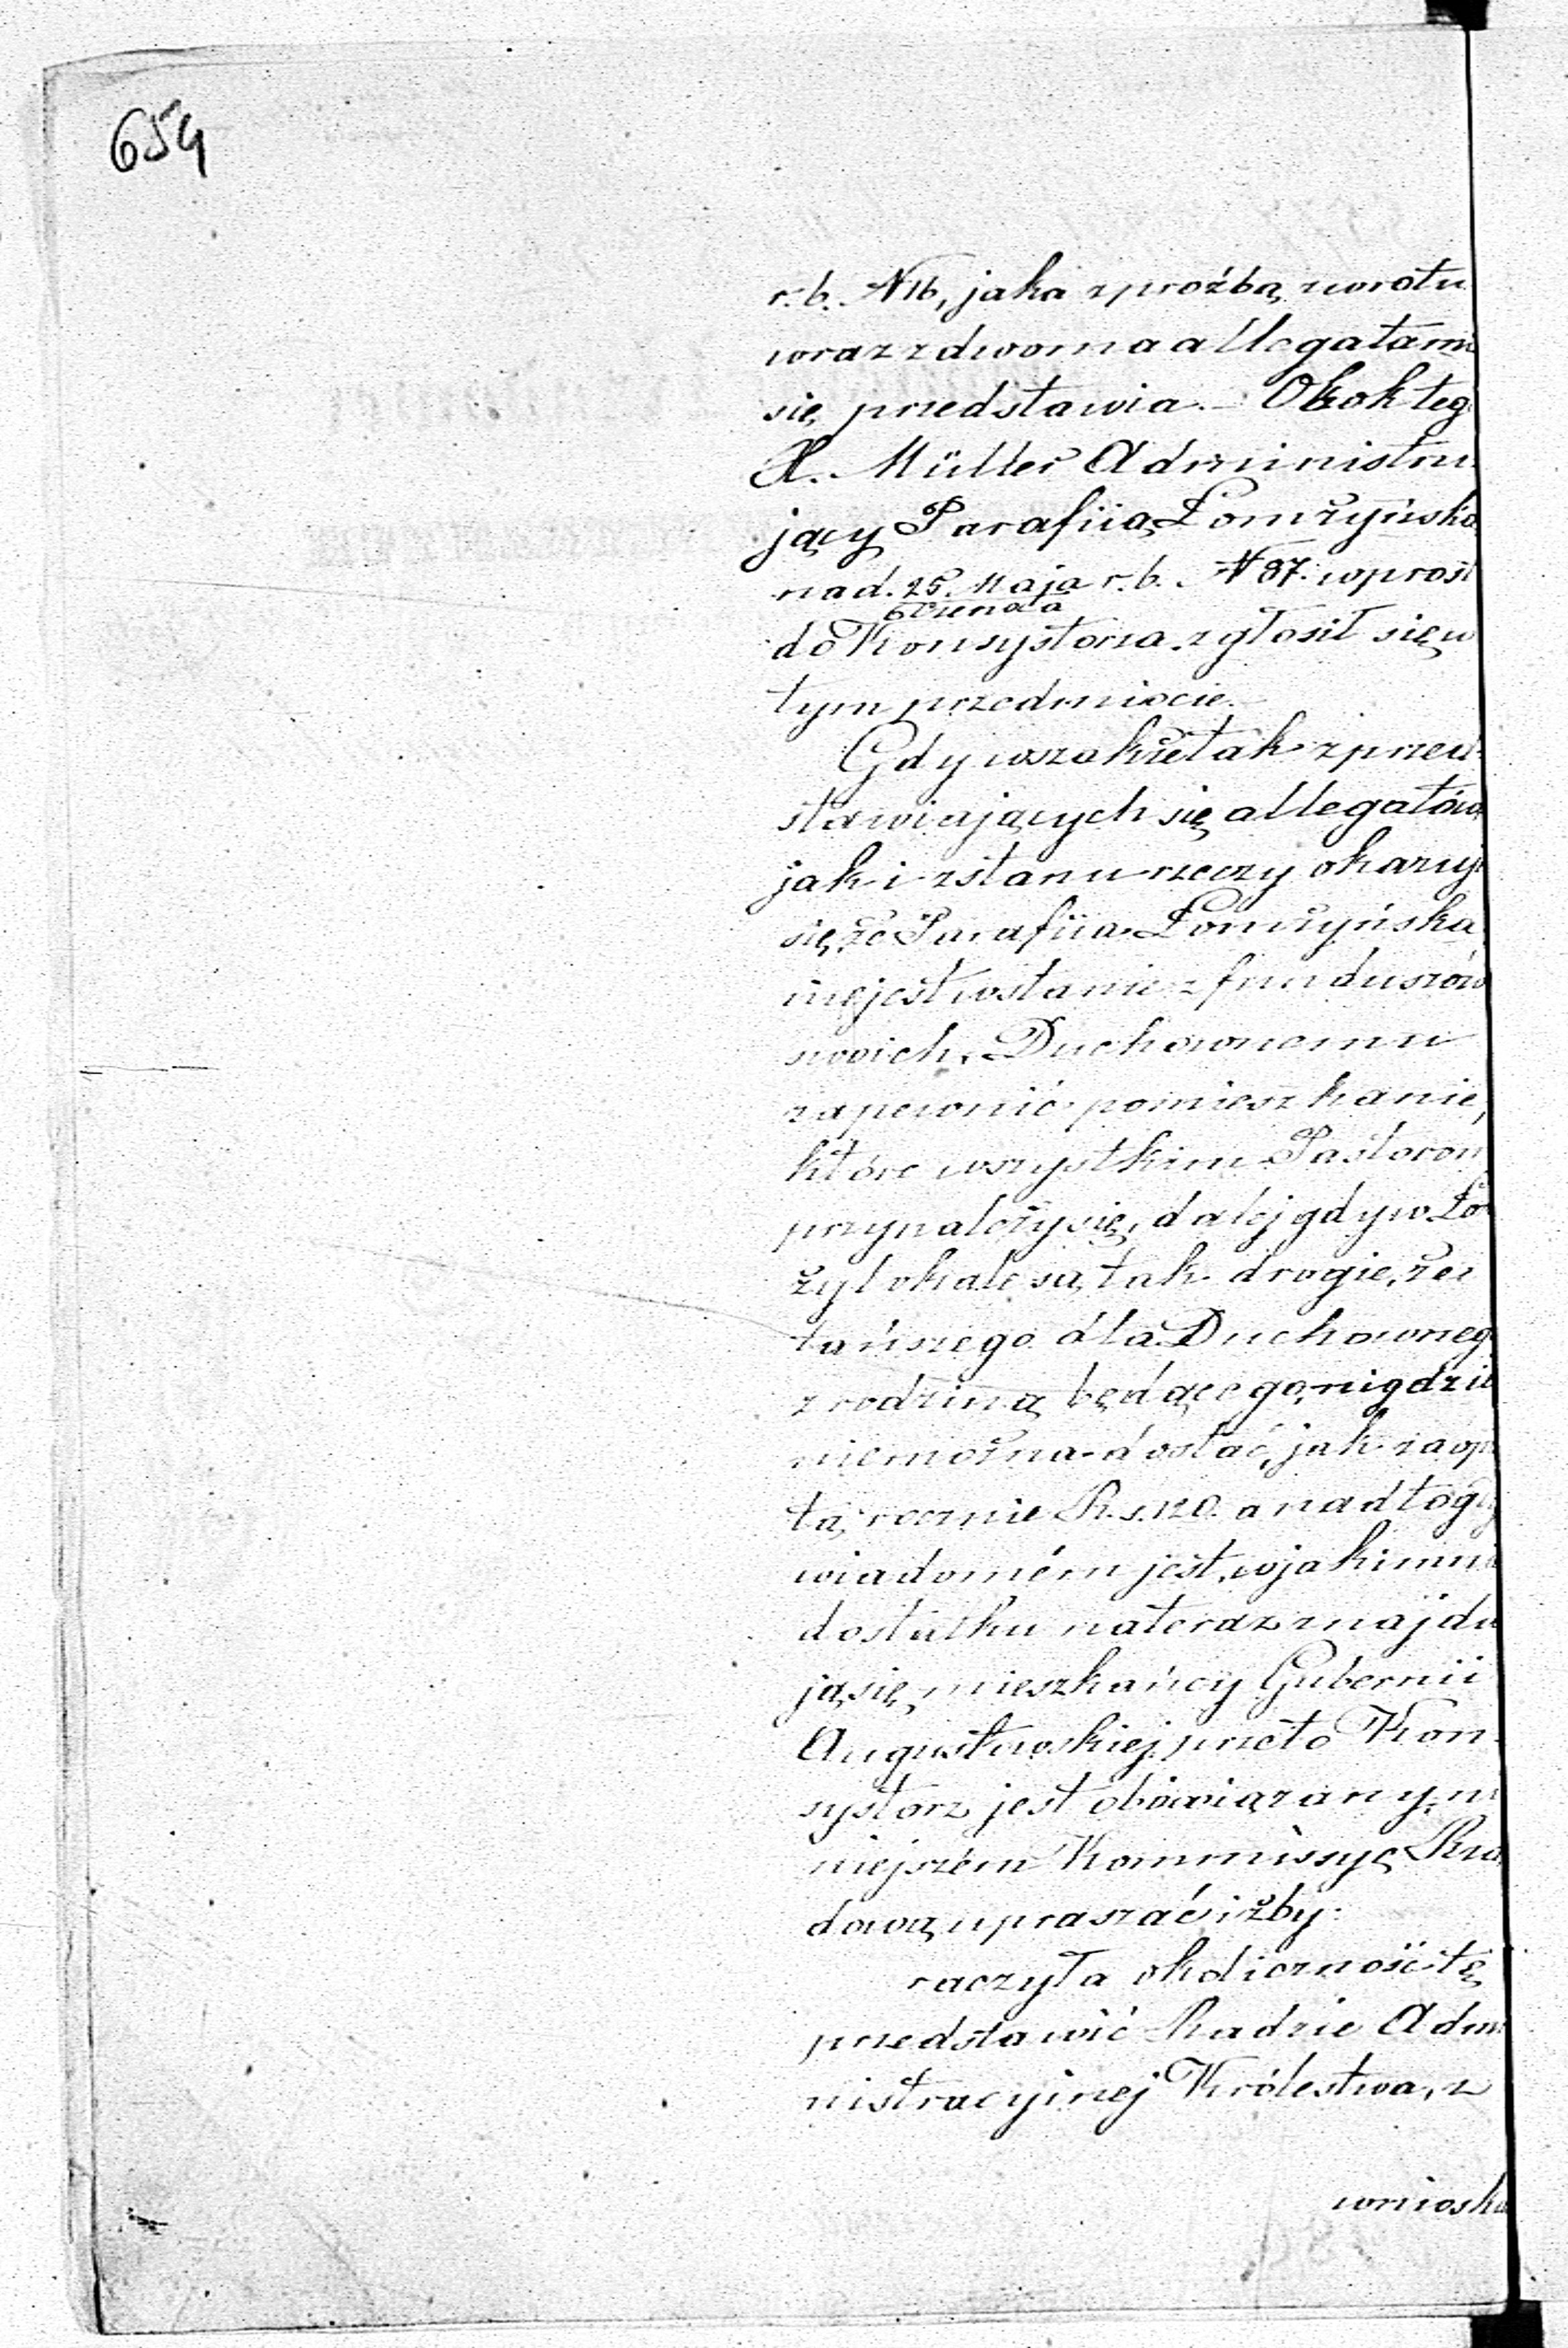 654
r. b. N 16, jaka z proźbą zwrotu
wraz z dwoma allegatami
się przedstawia. – Obok teg
X. Müller Administru-
jący Parafiią Łomżyńską
nad. 25. Maja r. b. N 87. wprost
6 Czerwca
do Konsystorza zgłosił się w
tym przedmiocie. –
Gdy wszakże tak z przed-
stawiających się allegatów,
jak i z stanu rzeczy okazuj
się, że Parafiia Łomżyńska
nie jest w stanie z funduszów
swoich, Duchownemu
zapewnić pomieszkanie,
które wszystkim Pastorom
przynależy się, dalej gdy w Łom
ży lokale są tak drogie, że
tańszego dla Duchowneg
z rodziną będącego, nigdzie
nie można dostać, jak za opł
tą rocznie R. s. 120. a nadto gdy
wiadomém jest, w jakim nie
dostatku na teraz znajdu
ją się mieszkańcy Gubernii
Augustowskiej, przeto Kon-
systorz jest obowiązanym ni
niejszém Kommissyę Rzą
dową upraszać iżby:
raczyła okoliczność tę
przedstawić Radzie Admi
nistracyinej Królestwa, z
wniosku